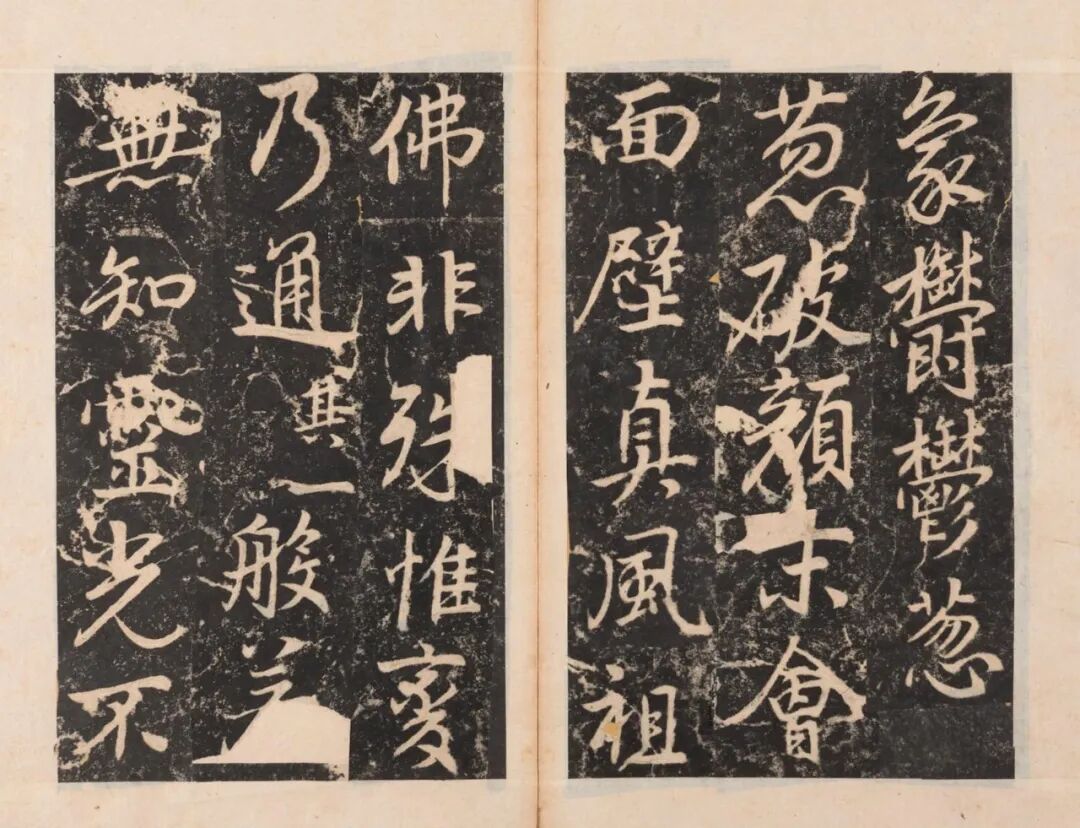 象鬱鬱葱
葱破顏會
面壁真風祖
佛非殊惟變
乃通其一般若
無知靈光不